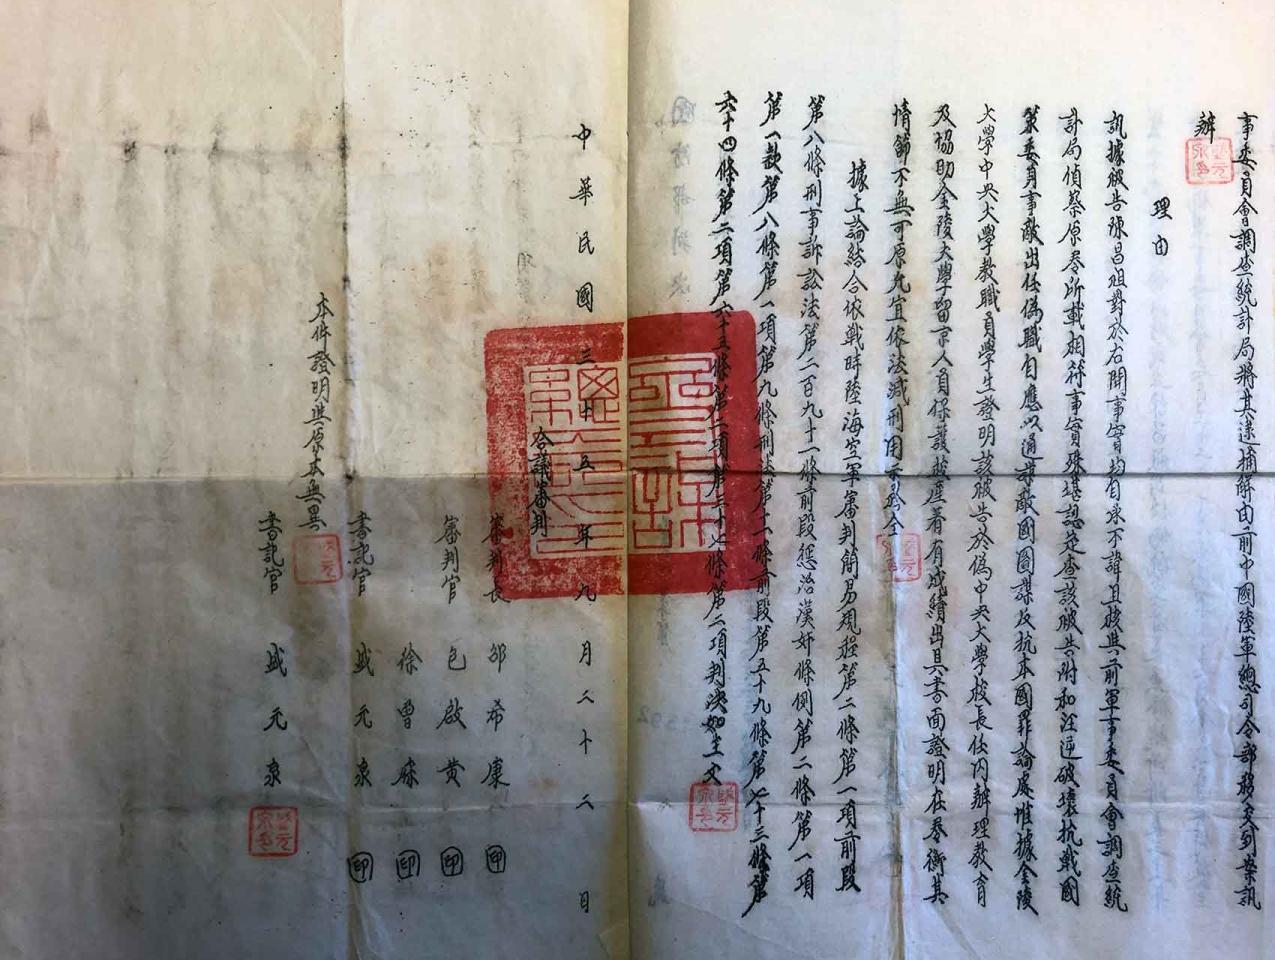 事委員會調查統計局將其逮捕解由前中國陸軍總司令部移交到案訊
辦
理由
訊據被告陳昌祖對於右開事實均自承不諱且核與前軍事委員會調查統
計局偵察原卷所載相符事實殊堪認定查該被告附和汪逆破壞抗戰國
策委身事敵出任偽職自應以通謀敵國圖謀反抗本國罪論處惟據金陵
大學中央大學教職員學生證明該被告於偽中央大學校長任內辦理教育
及協助金陵大學留京人員保護校產著有成績出具書面證明在卷衡其
情節不無可原允宜依法減刑用示矜全
據上論結合依戰時陸海空軍審判簡易規程第二條第一項前段
第八條刑事訴訟法第二百九十一條前段懲治漢奸條例第二條第一項
第一款第八條第一項第九條刑法第十一條前段第五十九條第七十三條第
六十四條第二項第六十五條第二項第三十七條第二項判決如主文
中華民國三十五年九月二十二日
合議審判
審判長 邵希康 印
審判官 包啟黄 印
徐曽 印
書記官 盛元 印
本件證明與原本無異
書記官 盛元